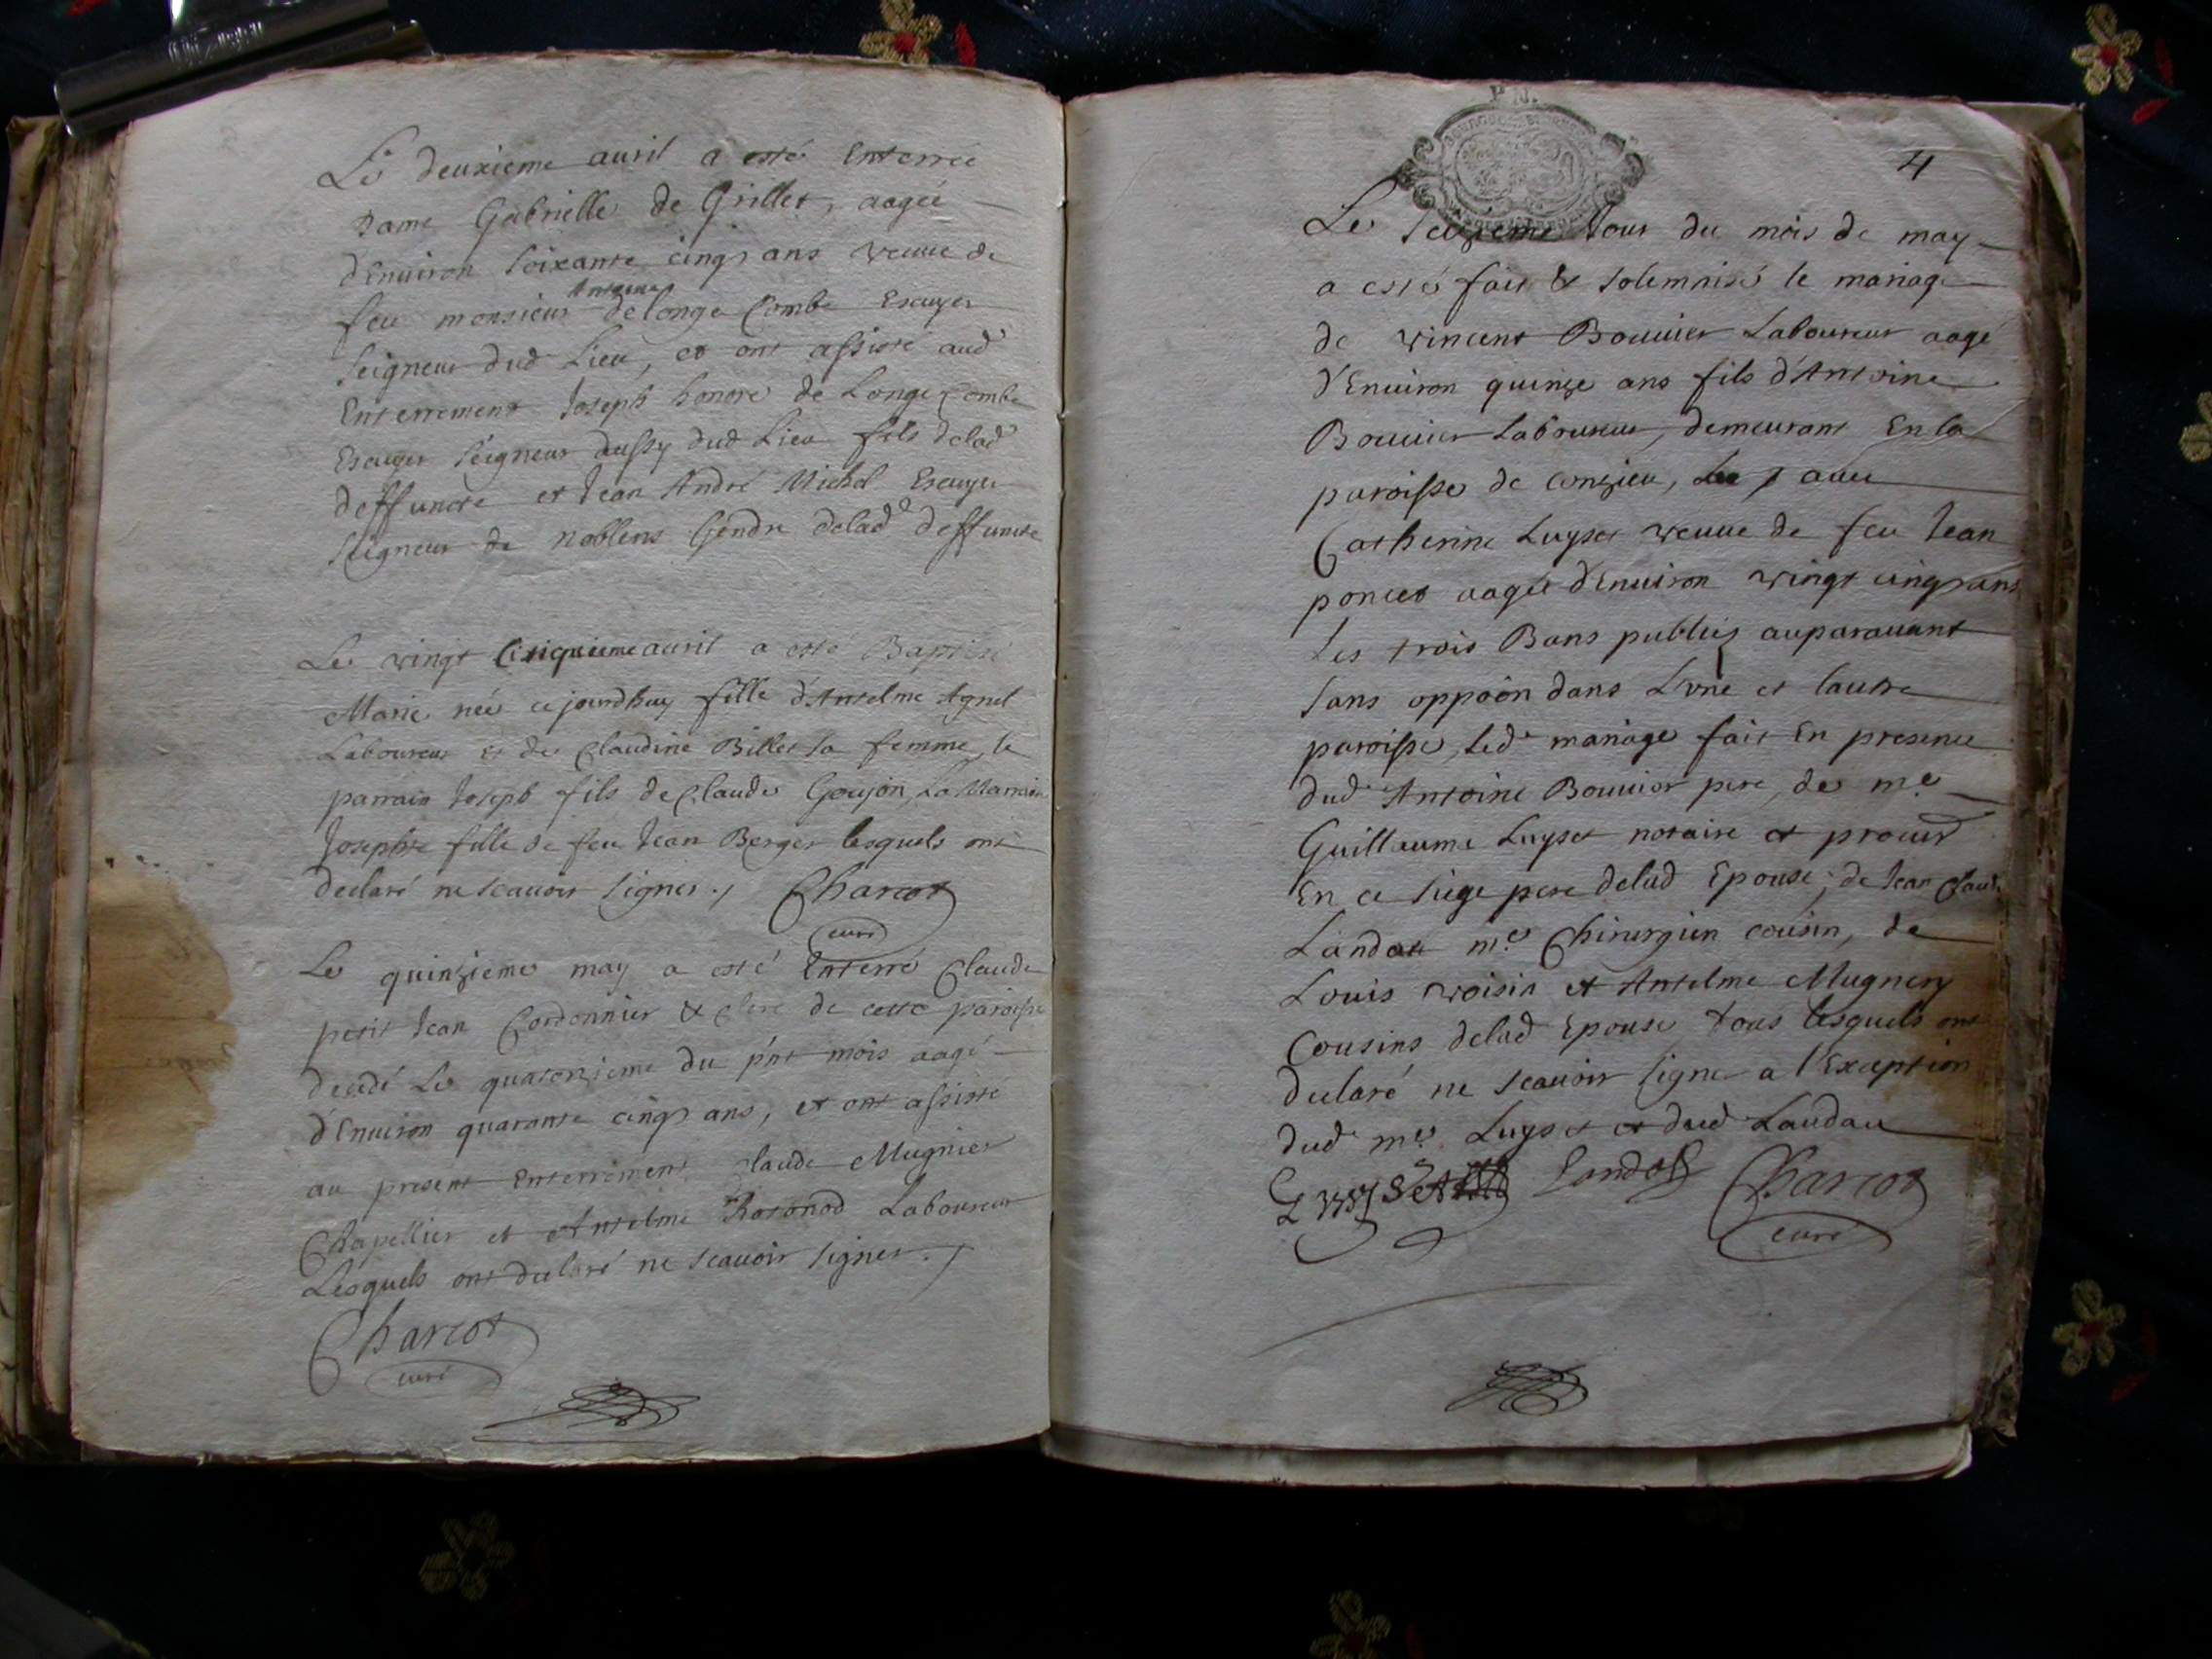 Le deuxieme auril a esté Enterrée
Dame Gabrielle de Grillet, aagée
d'Enuiron soixante cinq ans veuue de
Antoine
feu monsieur de longe Combe Escuyer
seigneur dud Lieu, et ont assisté aud
Enterrement Joseph honoré de Longe Combe
Escuyer seigneur aussy dud Lieu fils delad
deffuncte et Jean André Michel Escuyer
seigneur de noblens Gendre delad deffuncte
Le vingt Cinquieme auril a esté Baptisé
Marie née ce jourdhuy fille d'Antelme Agnel
Laboureur et de Claudine Billet sa femme, le
parrain Joseph fils de Claude Goujon, La Marraine
Josephte fille de feu Jean Berger lesquels ont
declaré ne scauoir signer ./ Charcot
curé
Le quinzieme may a esté Enterré Claude
petit Jean Cordonnier & clerc de cette paroisse
decedé Le quatorzieme du pnt mois aagé
d'Enuiron quarante cinq ans, et ont assisté
au present Enterrement Claude Mugnier
Chapellier et Antelme Laboureur
Lesquels ont declaré ne scauoir signer ./
Charcot
curé
P. N.
4
Le seizieme Jour du mois de may
a esté fait & solemnisé le mariage
de vincent Bouuier Laboureur aage
d'Enuiron quinze ans fils d'Antoine
Bouuier Laboureur, demeurant En la
paroisse de conzieu, auec
Catherine Luyset veuue de feu Jean
poncet aagée d'Enuiron vingt cinq ans
Les trois Bans publiez auparauant
sans oppoôn dans L'vne et lautre
paroisse, led mariage fait En presence
dud Antoine Bouuier pere, de me
Guillaume Luyset notaire et procur
En ce siege pere delad Epouse, de Jean Claude
Landau me Chirurgien cousin, de
Louis voisin et Antelme Mugnery
Cousins delad Epouse tous lesquels ont
declaré ne scauoir signer a l'Exception
dud me Luyset et dud Laudau
Luyset Charcot
curé